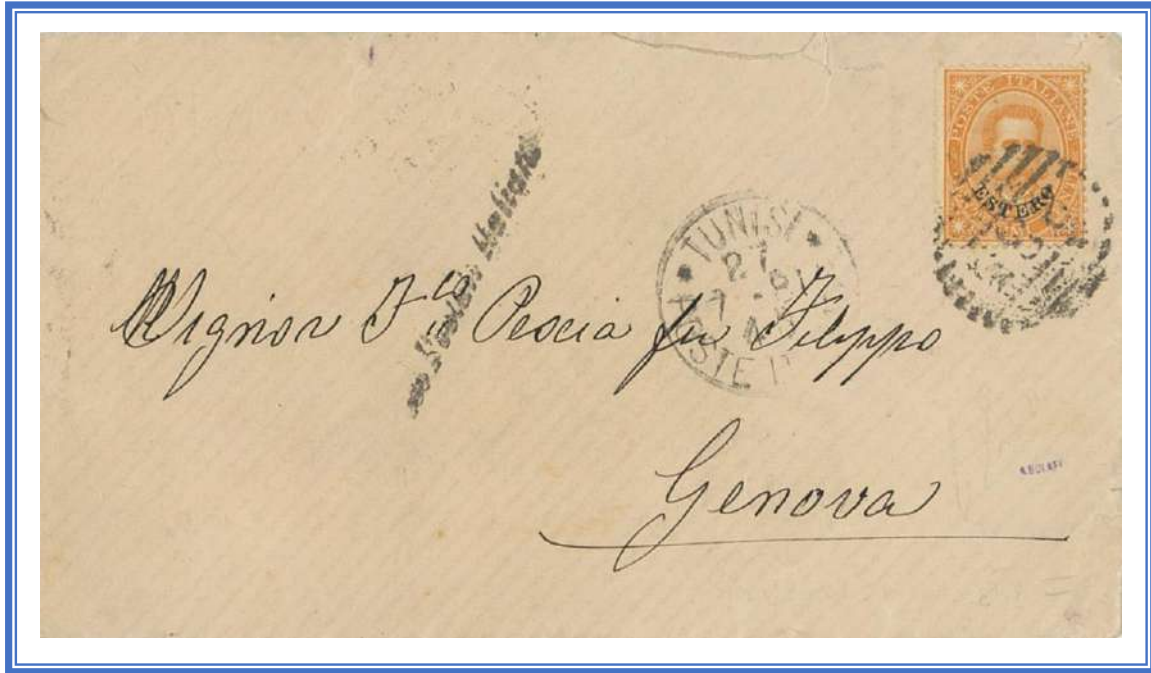 POSTE ITALIANE
ESTERO
Italiano
TUNISI
27
POSTE
Signor F.co Pescia fu Filippo
Genova